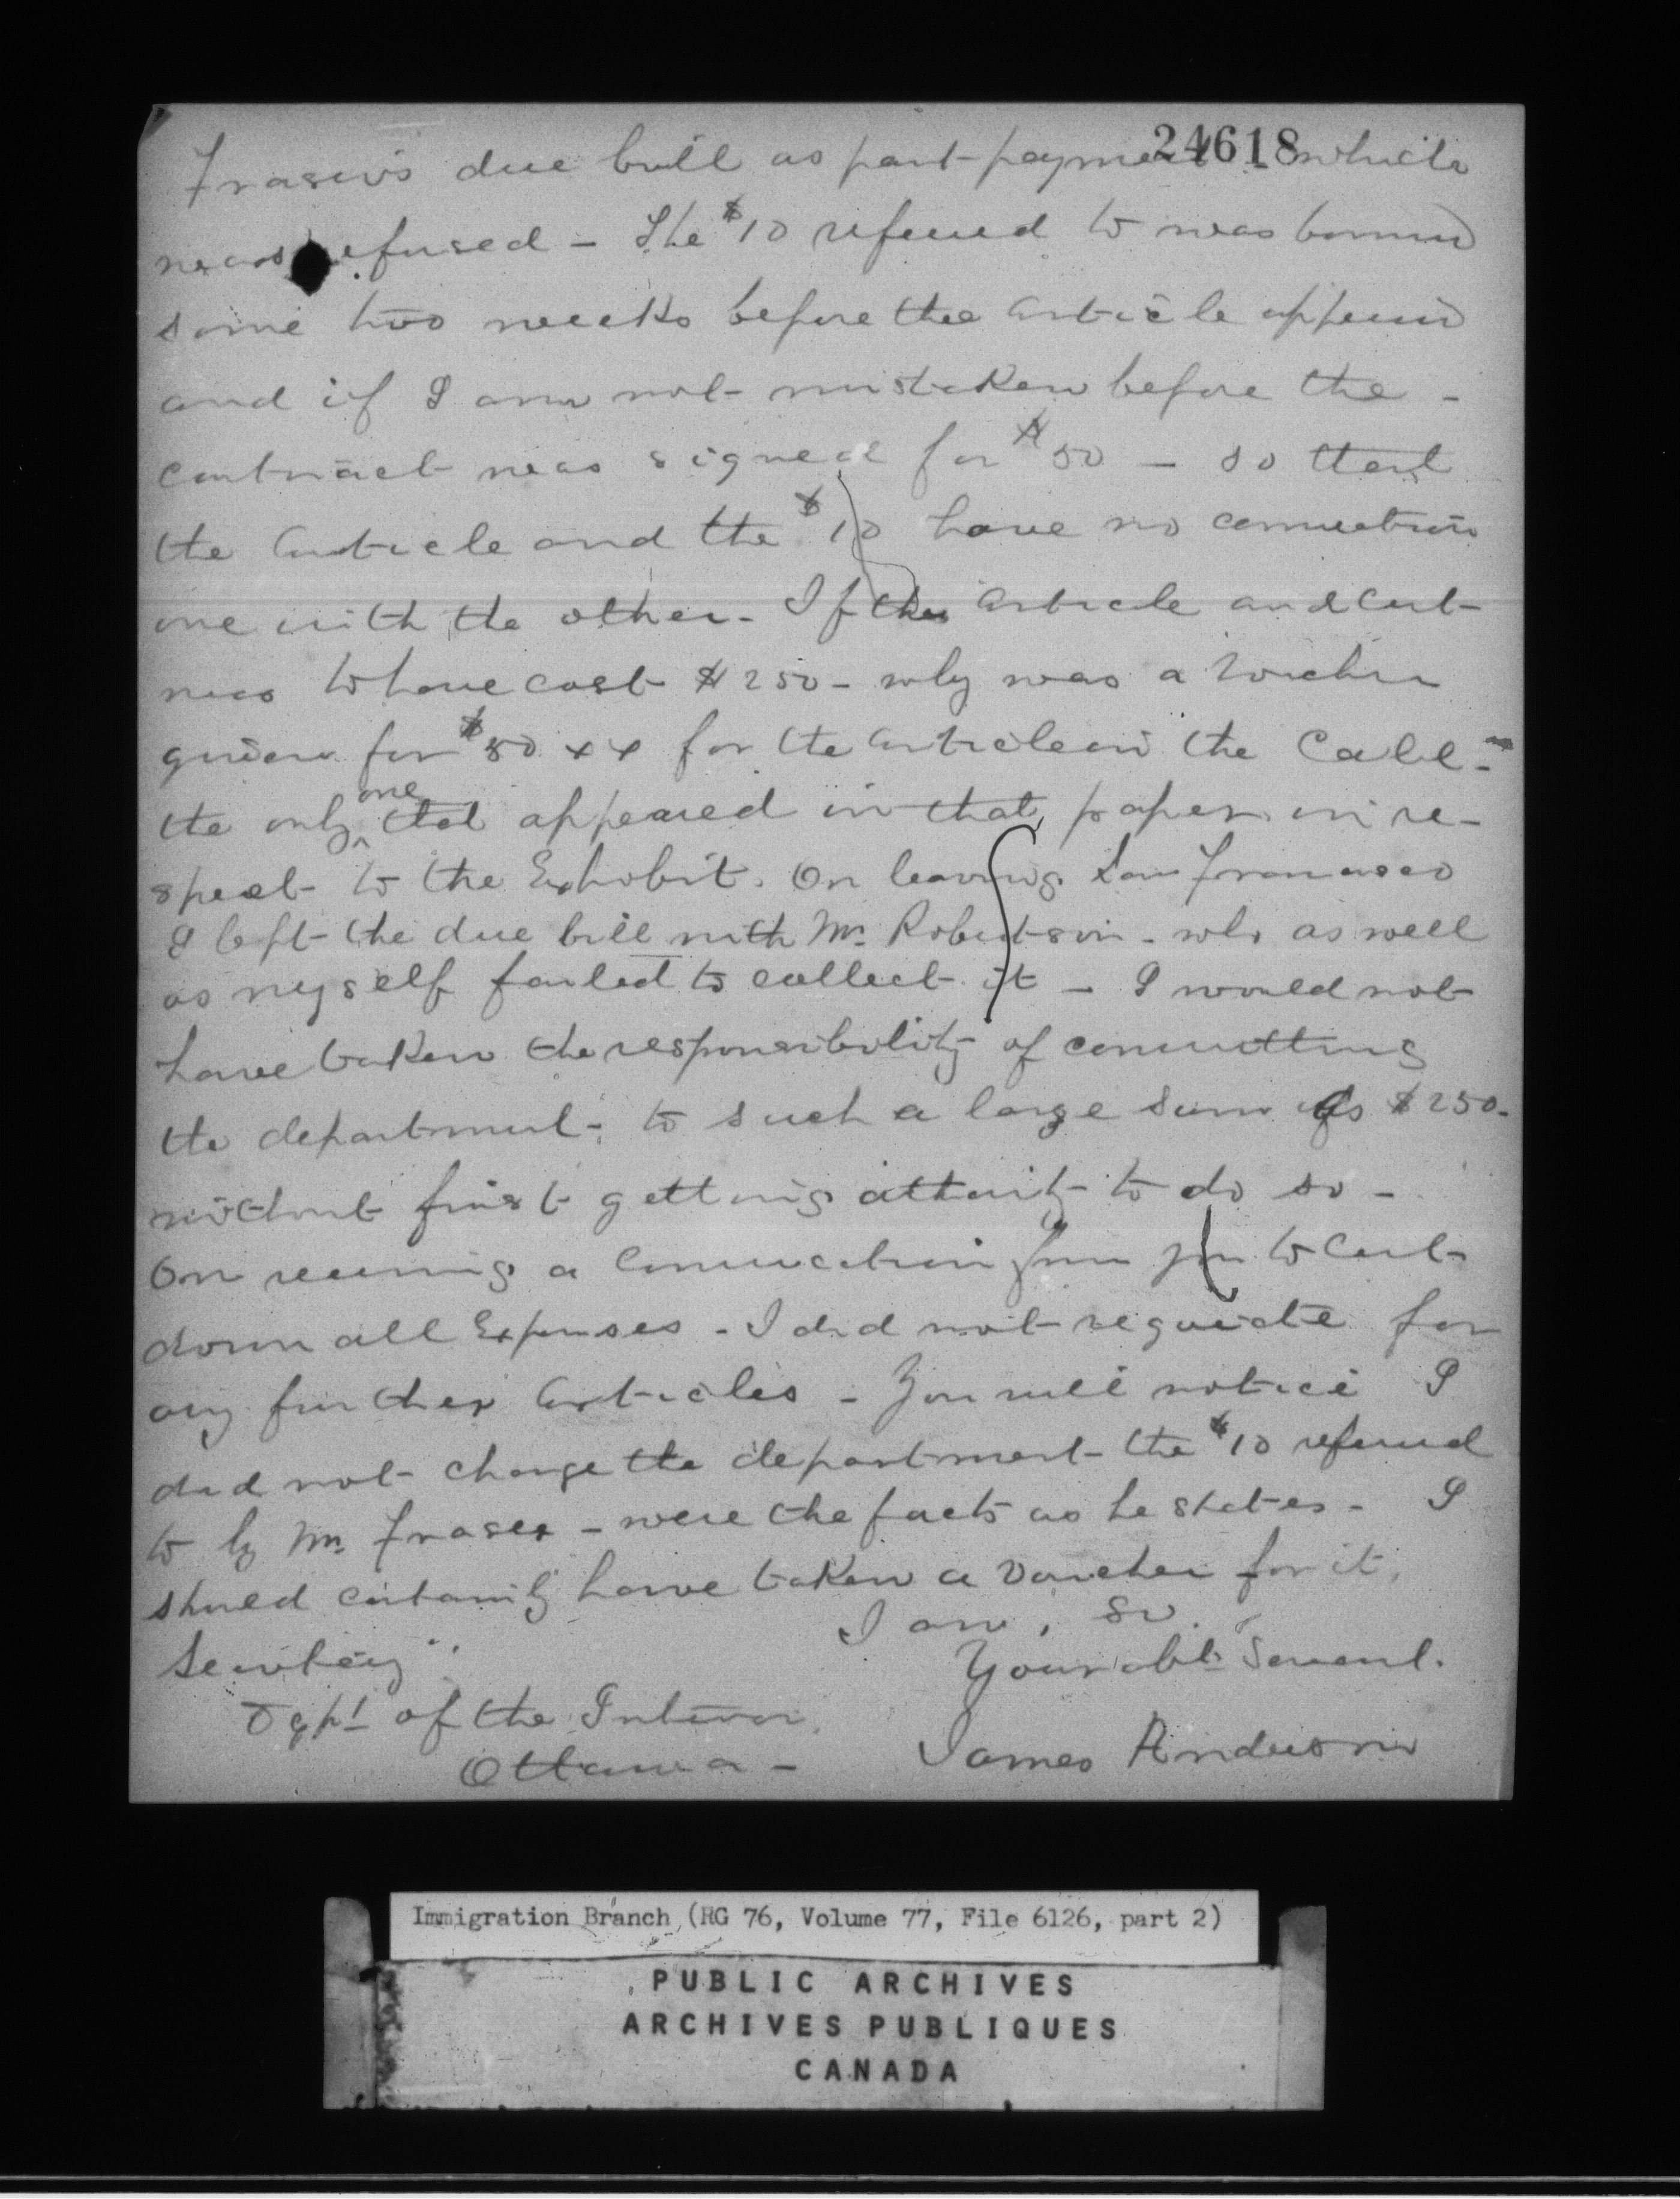 24618
Fraser's due bill as part-payment - which
was refused - The $10 referred to was borrowed
some two weeks before the article appeared
and if I am not mistaken before the -
contract was signed for $50 - so that
the article and the $10 have no connection
one with the other - If the article and Cut
was to have cost $250 - why was a voucher
given for $50 xx for the article in the Call -
the only one that appeared in that paper in re-
spect to the Exhibit. On leaving San Francisco
I left the due bill with Mr. Robertson - who as well
as myself failed to collect it - I would not
have taken the responsibility of committing
the department - to such a large sum as $250 -
without first getting to do so -
On receiving a from you to cut
down all Expenses - I did not for
any further articles - You will notice I
did not charge the department the $10 referred
to by Mr. Fraser - were the facts as he states - I
should certainly have taken a voucher for it.
I am, Sir.
Your obt. Servant.
James Anderson
Secretary
Dept of the Interior
Ottawa -
Immigration Branch (RG 76, Volume 77, File 6126, part 2)
PUBLIC ARCHIVES
ARCHIVES PUBLIQUES
CANADA